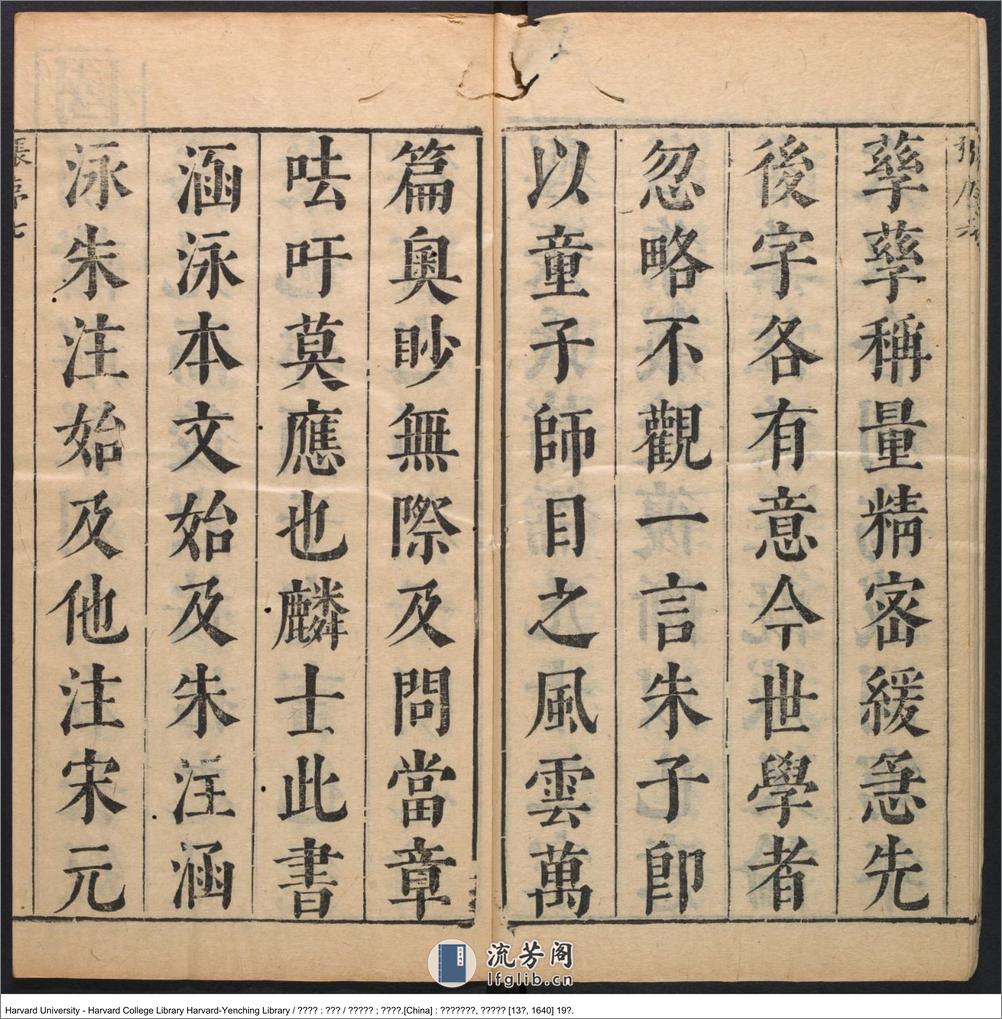 孳孳稱量精密緩急先
後字各有意今世學者
忽略不觀一言朱子卽
以童子師目之風雲萬
篇奧眇無際及問當章
呿吁莫應也麟士此書
涵泳本文始及朱注涵
泳朱注始及他注宋元
張序七
流芳阁
lfglib.cn
Harvard University - Harvard College Library Harvard-Yenching Library / ???? : ??? / ????? ; ????.[China] : ???????, ????? [13?, 1640] 19?.